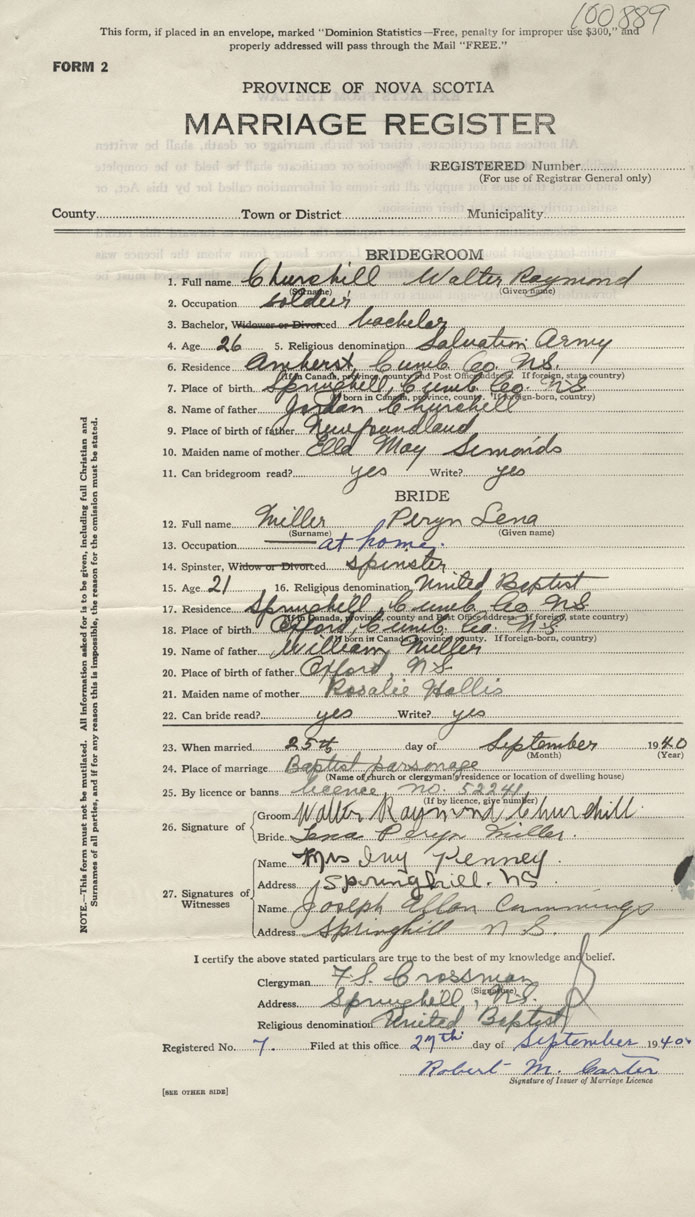 100889
This form, if placed in an envelope, marked "Dominion Statistics—Free, penalty for improper use $300," and
properly addressed will pass through the Mail "FREE."
FORM 2
PROVINCE OF NOVA SCOTIA
MARRIAGE REGISTER
REGISTERED Number
(For use of Registrar General only)
County Town or District Municipality
BRIDEGROOM
1. Full name Churchill Walter Raymond
(Surname) (Given name)
2. Occupation soldier
3. Bachelor, Widower or Divorced bachelor
4. Age 26 5. Religious denomination Salvation Army
6. Residence Amherst, Cumb. Co. N.S.
(If in Canada, province, county and Post Office address. If foreign, state country)
7. Place of birth Springhill, Cumb. Co. N.S.
(If born in Canada, province, county. If foreign-born, country)
8. Name of father Jordan Churchill
9. Place of birth of father Newfoundland
10. Maiden name of mother Ella May Simonds
11. Can bridegroom read? yes Write? yes
BRIDE
12. Full name Miller Peryn Lena
(Surname) (Given name)
13. Occupation at home.
14. Spinster, Widow or Divorced spinster
15. Age 21 16. Religious denomination United Baptist
17. Residence Springhill, Cumb. Co. N.S.
(If in Canada, province, county and Post Office address. If foreign, state country)
18. Place of birth Oxford, Cumb. Co. N.S.
(If born in Canada, province, county. If foreign-born, country)
19. Name of father William Miller
20. Place of birth of father Oxford, N.S.
21. Maiden name of mother Rosalie Hollis
22. Can bride read? yes Write? yes
23. When married 25th day of September 1940
(Month) (Year)
24. Place of marriage Baptist parsonage
(Name of church or clergyman's residence or location of dwelling house)
25. By licence or banns licence, no. 52241
(If by licence, give number)
26. Signature of
Groom Walter Raymond Churchill
Bride Lena Peryn Miller.
27. Signatures of Witnesses
Name Mrs Ivy Kenney.
Address Springhill. NS
Name Joseph Cummings
Address Springhill N.S.
I certify the above stated particulars are true to the best of my knowledge and belief.
Clergyman F. S. Crossman
(Signature)
Address Springhill, N.S.
Religious denomination United Baptist
Registered No. 7. Filed at this office 27th day of September 1940.
Robert M. Carter
Signature of Issuer of Marriage Licence
[SEE OTHER SIDE]
NOTE.—This form must not be mutilated. All information asked for is to be given, including full Christian and
Surnames of all parties, and if for any reason this is impossible, the reason for the omission must be stated.